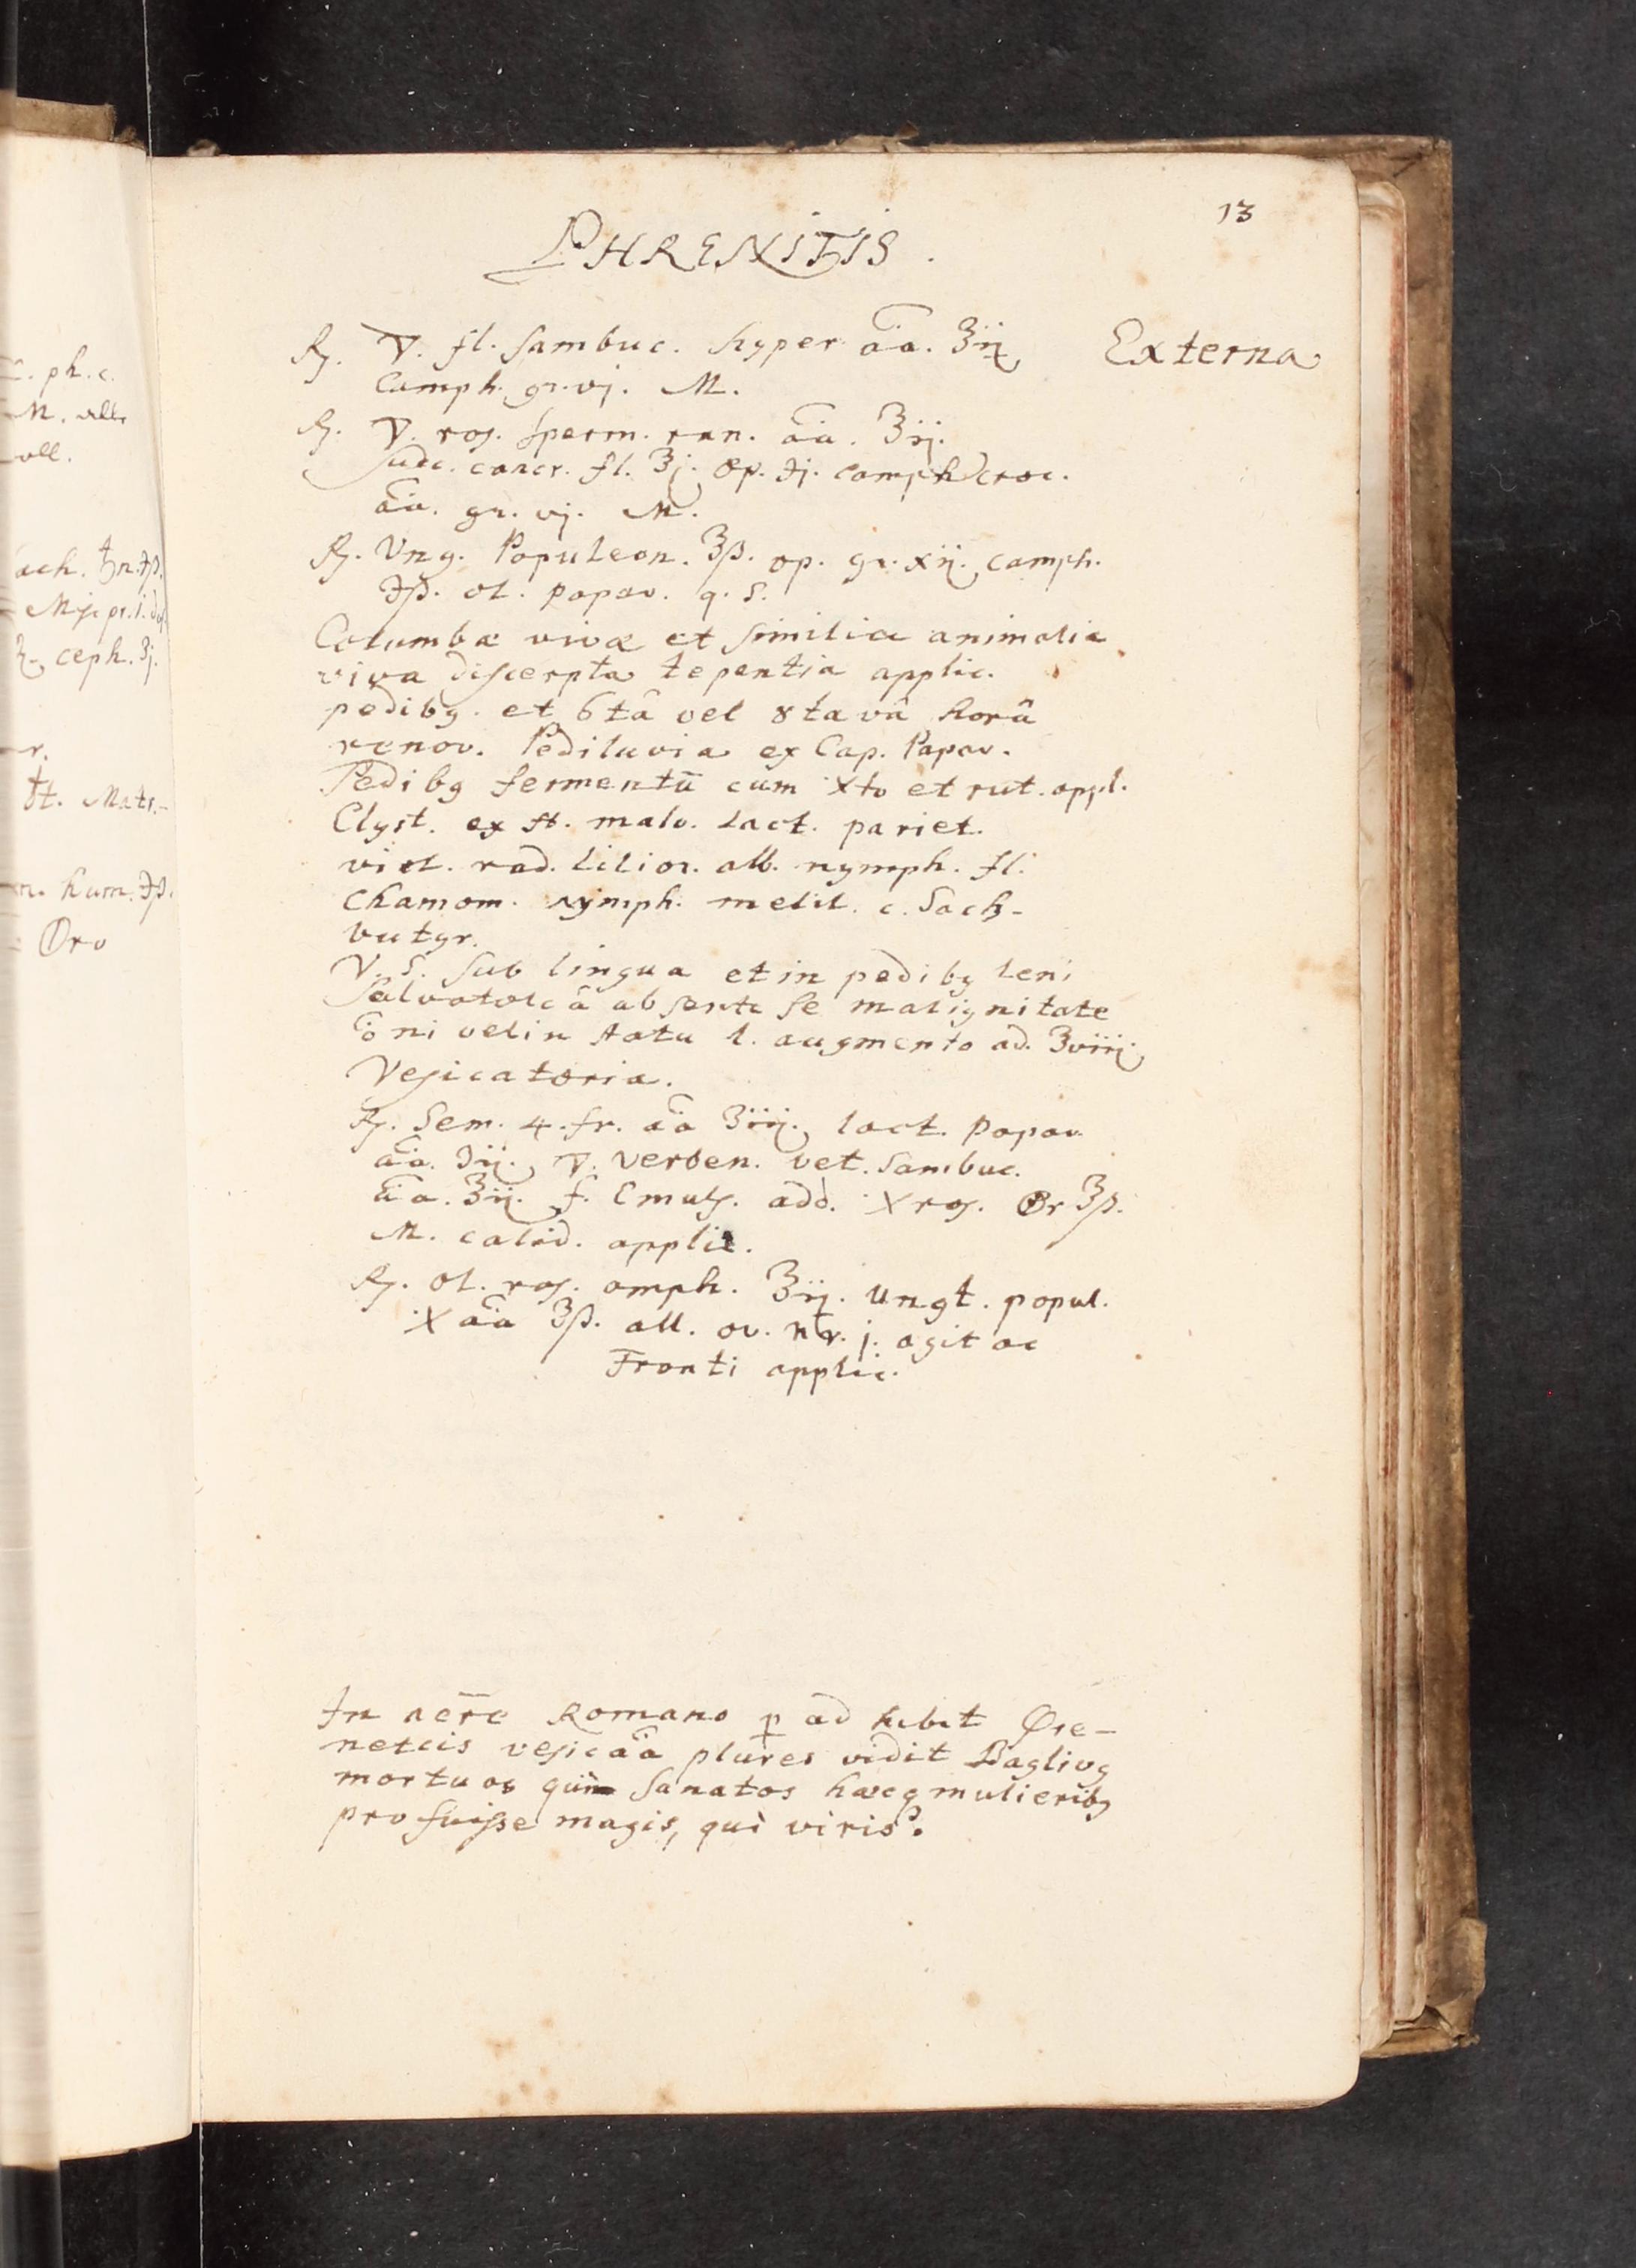 13
PHRENITIS.
Externa
℞. 🜄. fl. sambuc. hyper āā. ℥ij
Camph. gr. vj. M.
℞. 🜄. ros. sperm. ran. āā. ℥ij.
Succ. cancr. fl. ℥j. op. ℈j. camph croc.
āā. gr. vj. M.
℞. Ung. Populeon. ℥ß. op. gr. xij. camph.
℈ß. ol. papav. q. S.
Columbæ vivæ et similia animalia
viva discerpta tepentia applic.
pedibꝯ. et 6tâ vel 8tavâ horâ
renov. Pediluvia ex Cap. Papav.
Pedibꝯ fermentū cum 🜊to et rut. appl.
Clyst. ex malv. lact. pariet.
viol. rad. lilior. alb. nymph. fl.
Chamom. nymph. melil. c. Sach-
butyr.
V. S. sub lingua et in pedibꝯ leni
Salvatolcâ absente se malignitate
ōni vel in statu l. augmento ad. ℥viij.
Vesicatoria.
℞. Sem. 4. fr. āā ℥iij. lact. papav.
āā. ʒij. 🜄. verben. bet. sambuc.
āā. ℥ij. f. Emuls. add. 🜊 ros. ℥ß.
M. calid. applic.
℞. ol. ros. omph. ℥ij. Ungt. popul.
🜊 āā ℥ß. alb. ov. nr. j. agit ac
Fronti applic.
In aëre Romano p̱ adhibit Phre-
neticis vesicāā plures vidit Baglivꝯ
mortuos sanatos hæcq mulieribꝯ
profuisse magis, viris.